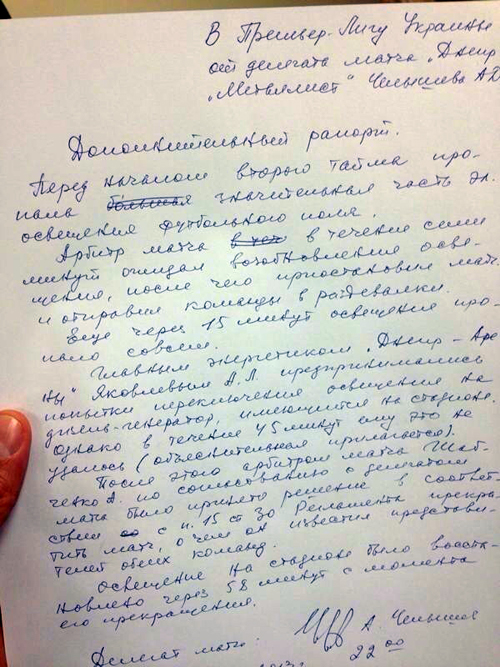 В Премьер-Лигу Украины
от делегата матча „Днепр
„Металлист" Челышева А
Дополнительный рапорт.
Перед началом второго тайма про-
пала большая значительная часть эл.
освещения футбольного поля.
Арбитр матча в теч в течение семи
минут ожидал возобновления осве-
щения, после чего приостановил матч
и отправил команды в раздевалки.
Еще через 15 минут освещение про-
пало совсем.
Главным энергетиком „Днепр-Аре
ны" Яковлевым А.Л. предпринимались
попытки переключения освещения на
дизель-генератор, имеющийся на стадионе.
Однако в течение 45 минут ему это не
удалось (объяснительная прилагается).
После этого арбитром матча Шаб-
ченко А. по согласованию с делегатом
матча было принято решение в соответ-
ствии со с п. 15 ст 30 Регламента прекра-
тить матч, о чем он известил представи-
телей обеих команд.
Освещение на стадионе было восста-
новлено через 58 минут с момента
его прекращения.
Делегат матча
А. Челышев
22 00